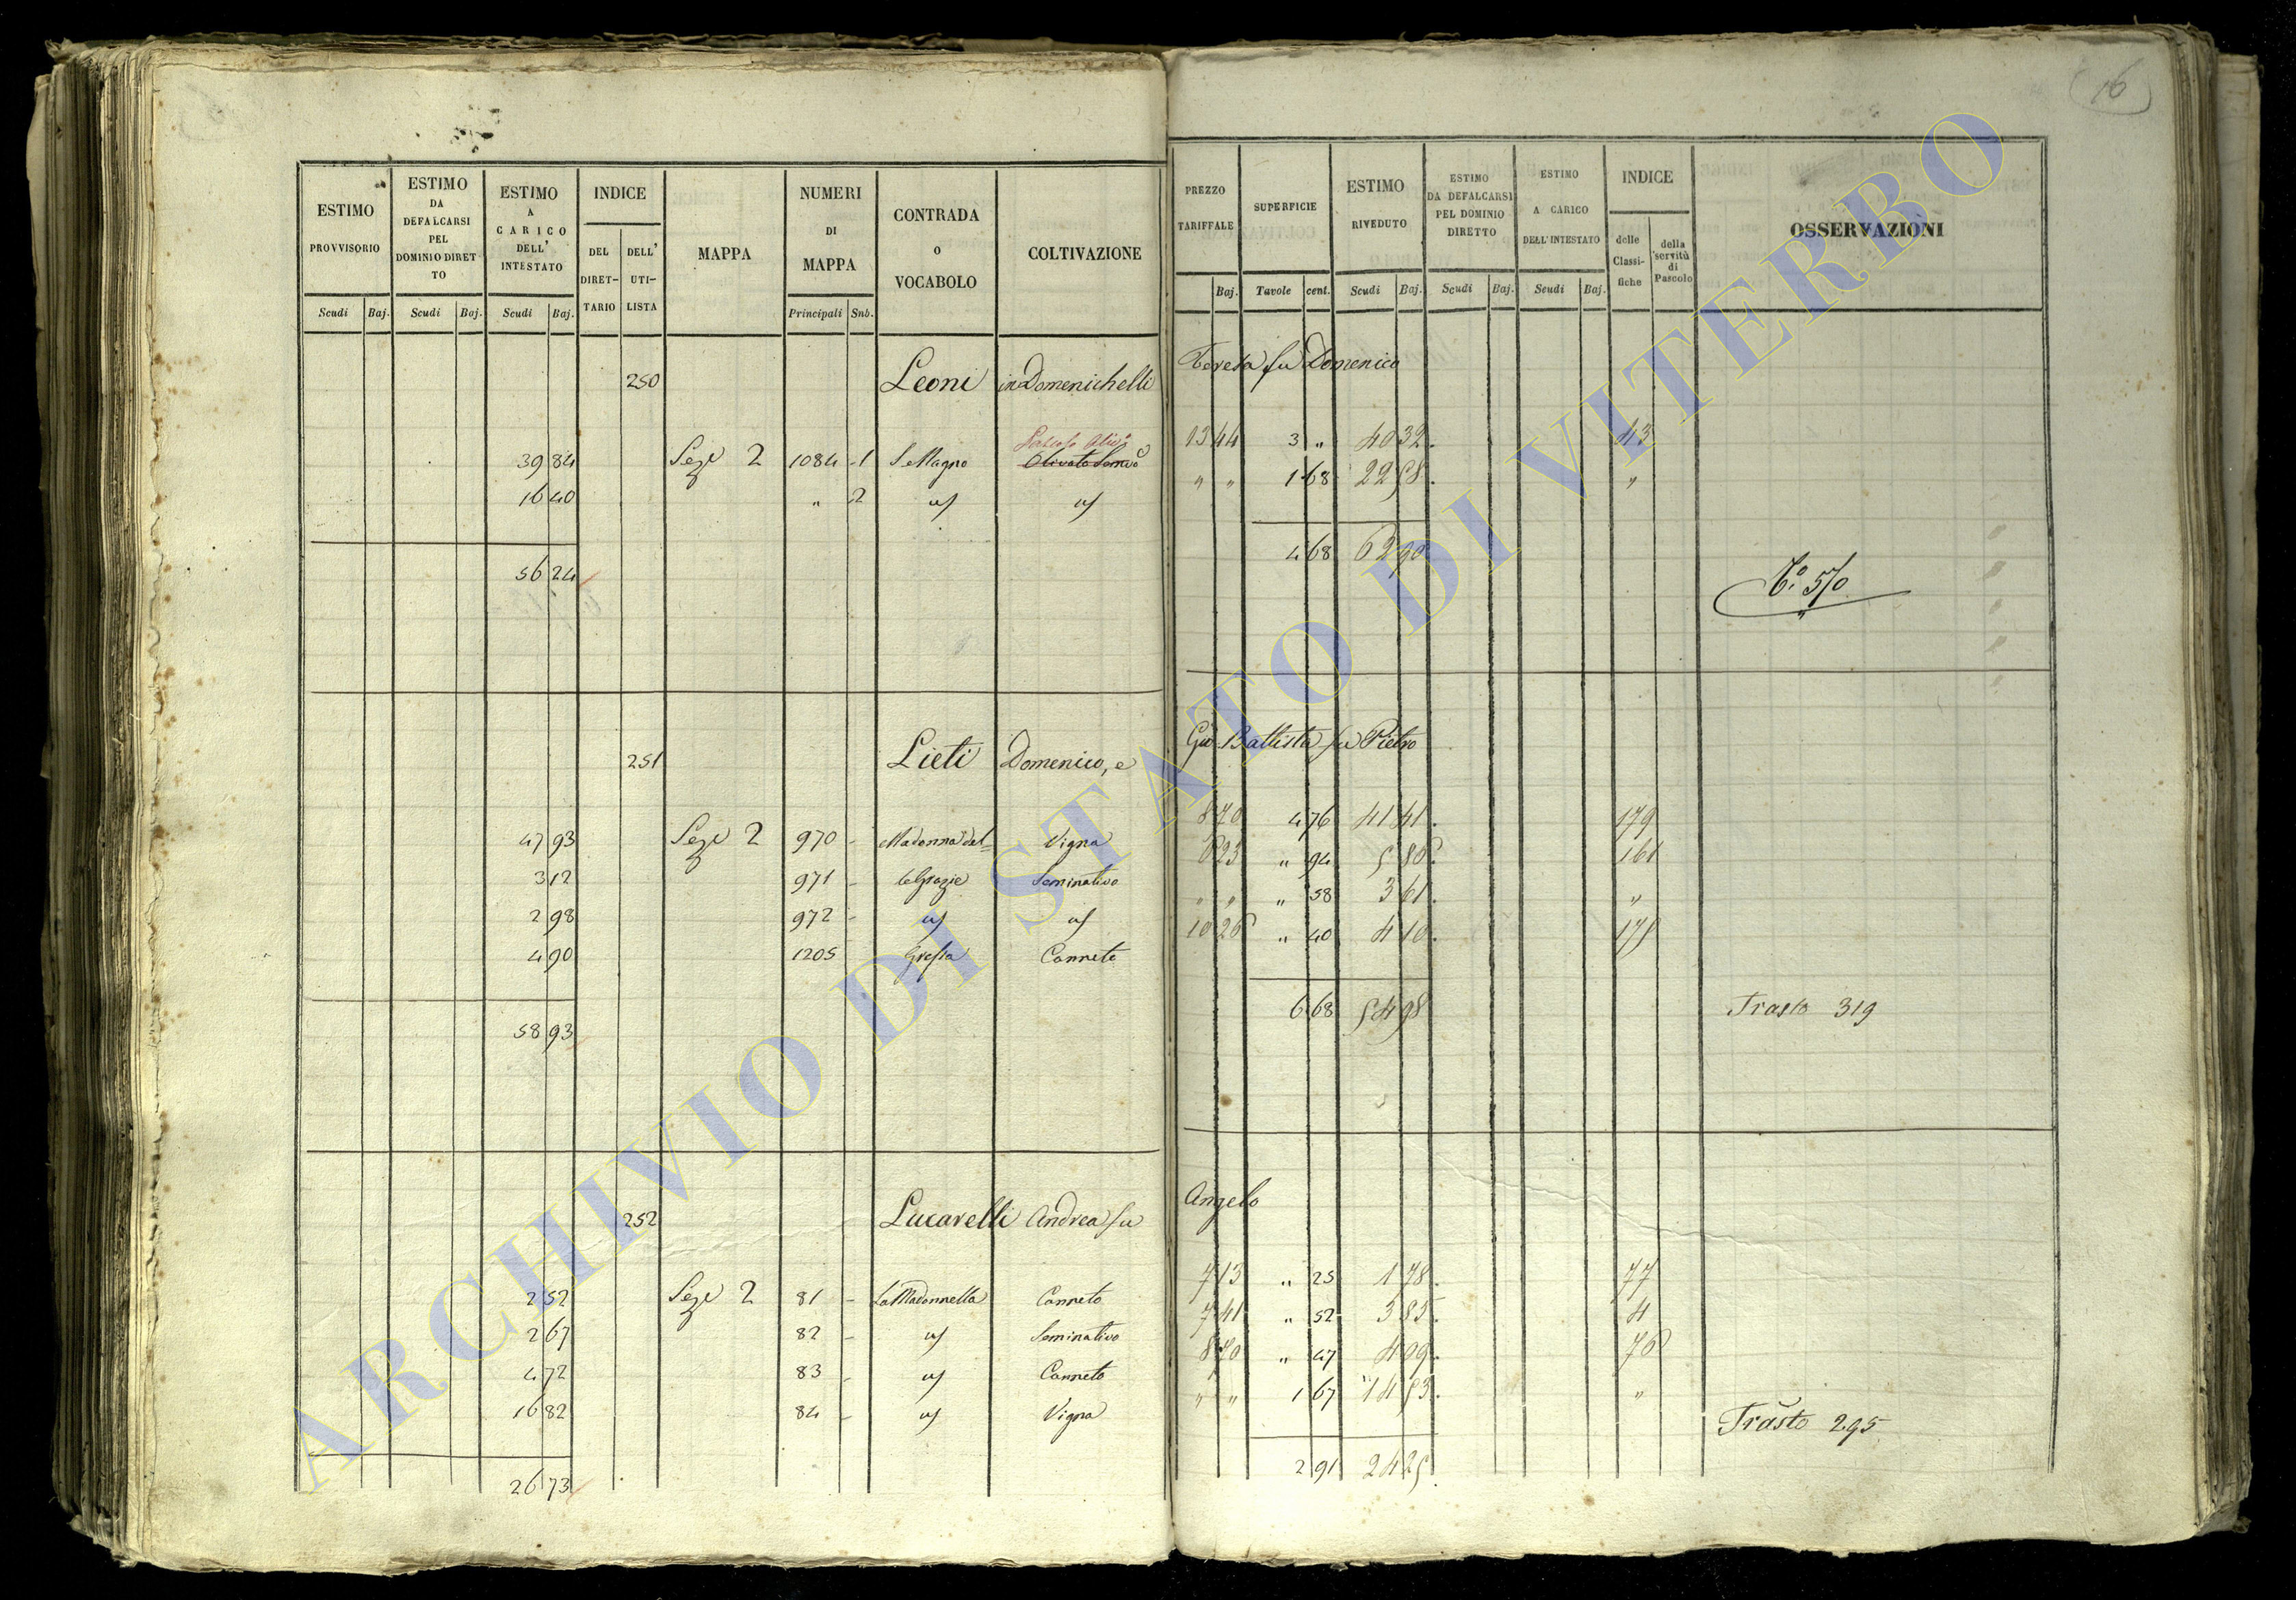 16
ESTIMO PROVVISORIO
ESTIMO DA DEFALCARSI PEL DOMINIO DIRETTO
ESTIMO A CARICO DELL' INTESTATO
INDICE
DEL DIRET-TARIO
DELL' UTI-LISTA
MAPPA
NUMERI DI MAPPA
CONTRADA o VOCABOLO
COLTIVAZIONE
Scudi Baj. Scudi Baj. Scudi Baj. Principali Sub.
PREZZO TARIFFALE
SUPERFICIE
ESTIMO RIVEDUTO
ESTIMO DA DEFALCARSI PEL DOMINIO DIRETTO
ESTIMO A CARICO DELL'INTESTATO
INDICE
delle Classi-fiche
della servitù di Pascolo
OSSERVAZIONI
Baj. Tavole cent. Scudi Baj. Scudi Baj. Scudi Baj.
250 Leoni in Domenichelli Teresa fu Domenico
39 84 Seze 2 1084 1 S. Magno Olivato 13 44 3 " 40 32 43
16 40 " 2 " " 1 68 22 58 "
56 24 4 68 62 90
570
251 Lieti Domenico, e Gio Battista fu Pietro
47 93 Seze 2 970 Madonna del= Vigna 8 70 4 76 41 41 179
3 12 971 le Grazie Seminativo 6 23 " 94 5 86 161
2 98 972 " " " 58 3 61 "
4 90 1205 Canneto 10 26 " 40 4 10 178
58 93 6 68 54 98 Trasto 319
252 Lucarelli Andrea fu Angelo
2 52 Seze 2 81 La Madonnella Canneto 7 13 " 25 1 78 77
2 67 82 Seminativo 7 41 " 52 3 85 4
4 72 83 Canneto 8 70 " 47 4 09 76
16 82 84 Vigna " " 1 67 14 53 "
26 73 2 91 24 25 Trasto 295
ARCHIVIO DI STATO DI VITERBO